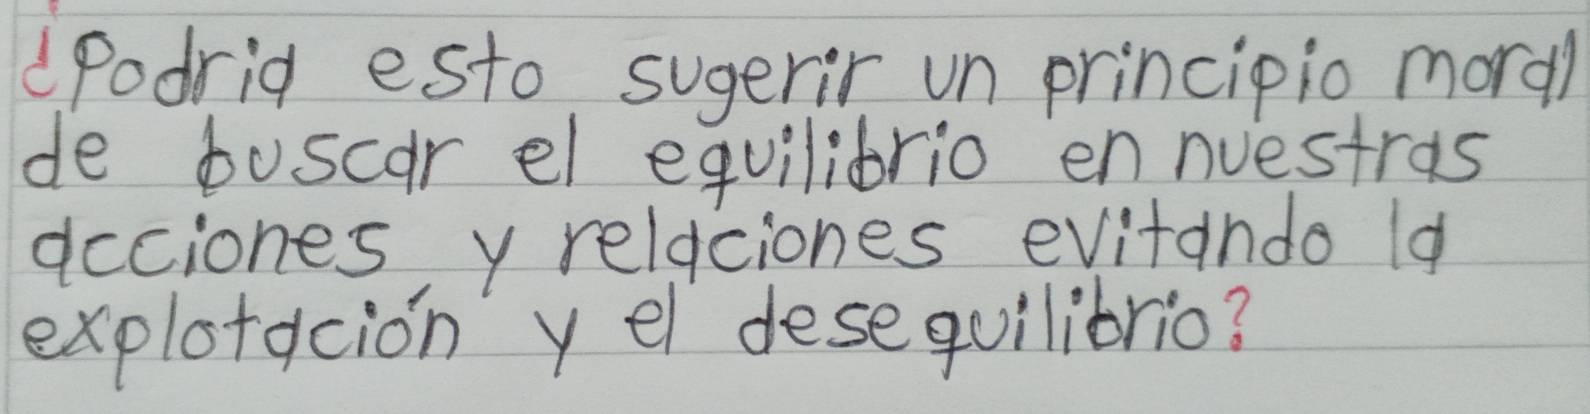 ¿Podria esto sugerir un principio moral
de buscar el equilibrio en nuestras
acciones y relaciones evitando la
explotación y el desequilibrio?